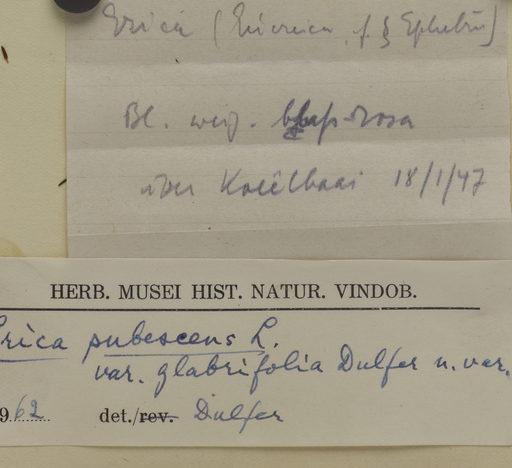 Erica (Euerica, f. § Ephebus)
Bl. weiß. blaß-rosa
über Koeëlbaai 18/1/47
HERB. MUSEI HIST. NATUR. VINDOB.
Erica pubescens L.
var. glabrifolia Dulfer n. var.
962 det./rev. Dulfer